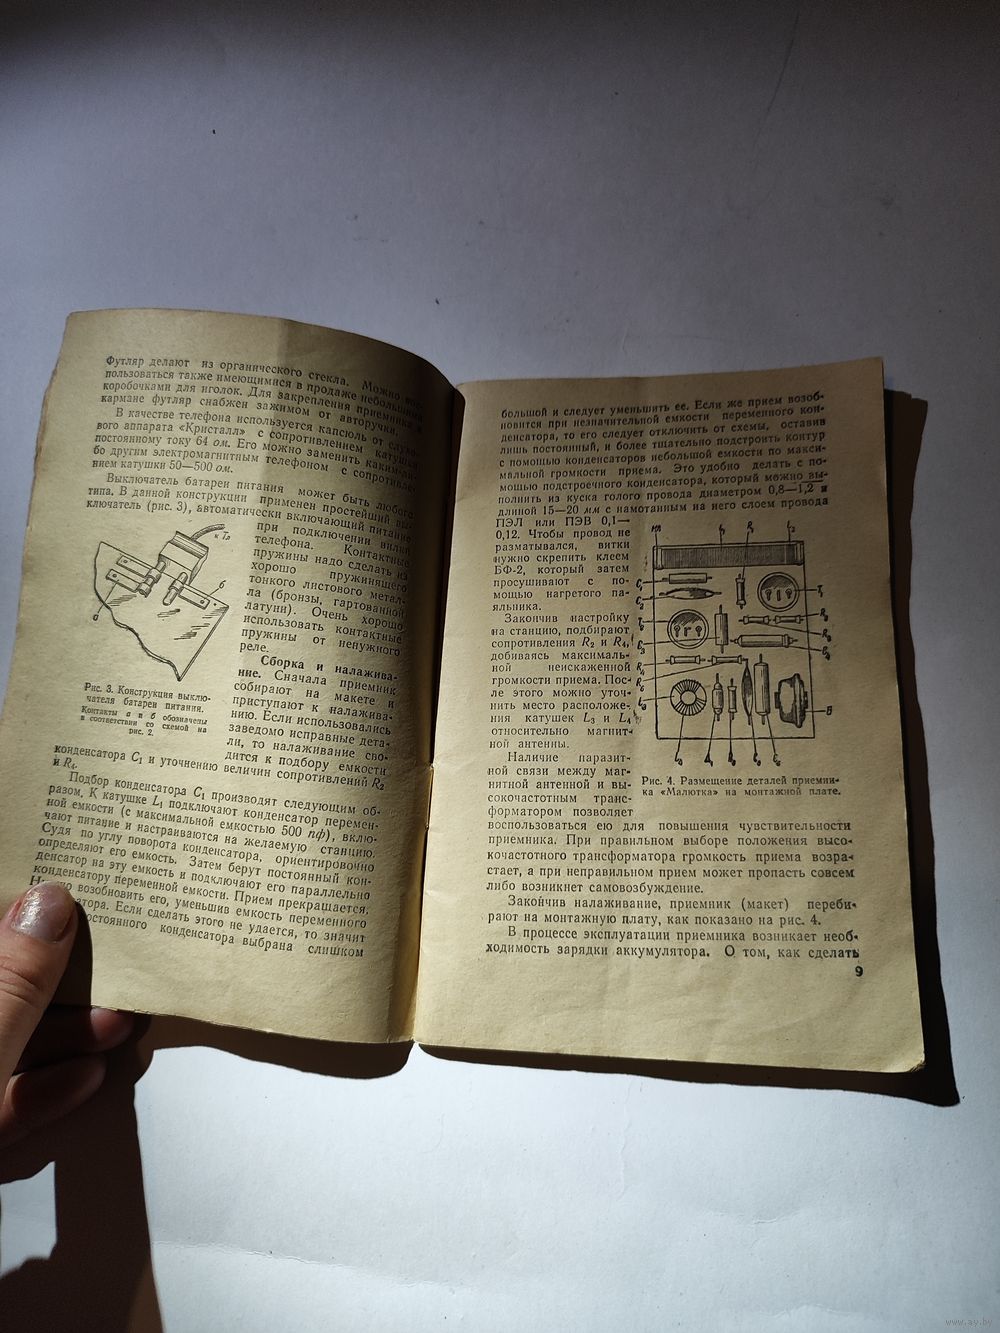 Футляр делают из органического стекла. Можно
пользоваться также имеющимися в продаже небольшими
коробочками для иголок. Для закрепления приемника в
кармане футляр снабжен зажимом от авторучки.
В качестве телефона используется капсюль от слухо-
вого аппарата «Кристалл» с сопротивлением катушки
постоянному току 64 ом. Его можно заменить каким-ли-
бо другим электромагнитным телефоном с сопротивле-
нием катушки 50—500 ом.
Выключатель батареи питания может быть любого
типа. В данной конструкции применен простейший вы-
ключатель (рис. 3), автоматически включающий питание
при подключении вилки
телефона. Контактные
пружины надо сделать из
хорошо пружинящего
тонкого листового метал-
ла (бронзы, гартованной
латуни). Очень хорошо
использовать контактные
пружины от ненужного
реле.
к Тл
а
б
Рис. 3. Конструкция выклю-
чателя батареи питания.
Контакты а и б обозначены
в соответствии со схемой на
рис. 2.
Сборка и налажива-
ние. Сначала приемник
собирают на макете и
приступают к налажива-
нию. Если использовались
заведомо исправные дета-
ли, то налаживание сво-
дится к подбору емкости
конденсатора C1 и уточнению величин сопротивлений R2
и R4.
Подбор конденсатора C1 производят следующим об-
разом. К катушке L1 подключают конденсатор перемен-
ной емкости (с максимальной емкостью 500 пф), вклю-
чают питание и настраиваются на желаемую станцию.
Судя по углу поворота конденсатора, ориентировочно
определяют его емкость. Затем берут постоянный кон-
денсатор на эту емкость и подключают его параллельно
конденсатору переменной емкости. Прием прекращается.
возобновить его, уменьшив емкость переменного
Если сделать этого не удается, то значит
постоянного конденсатора выбрана слишком
большой и следует уменьшить ее. Если же прием возоб-
новится при незначительной емкости переменного кон-
денсатора, то его следует отключить от схемы, оставив
лишь постоянный, и более тщательно подстроить контур
с помощью конденсаторов небольшой емкости по макси-
мальной громкости приема. Это удобно делать с по-
мощью подстроечного конденсатора, который можно вы-
полнить из куска голого провода диаметром 0,8—1,2 и
длиной 15—20 мм с намотанным на него слоем провода
ПЭЛ или ПЭВ 0,1—
0,12. Чтобы провод не
разматывался, витки
нужно скрепить клеем
БФ-2, который затем
просушивают с по-
мощью нагретого па-
яльника.
Закончив настройку
на станцию, подбирают
сопротивления R2 и R4,
добиваясь максималь-
ной неискаженной
громкости приема. Пос-
ле этого можно уточ-
нить место расположе-
ния катушек L3 и L4
относительно магнит-
ной антенны.
Наличие паразит-
ной связи между маг-
нитной антенной и вы-
сокочастотным транс-
форматором позволяет
Рис. 4. Размещение деталей приемни-
ка «Малютка» на монтажной плате.
воспользоваться ею для повышения чувствительности
приемника. При правильном выборе положения высо-
кочастотного трансформатора громкость приема возра-
стает, а при неправильном прием может пропасть совсем
либо возникнет самовозбуждение.
Закончив налаживание, приемник (макет) переби-
рают на монтажную плату, как показано на рис. 4.
В процессе эксплуатации приемника возникает необ-
ходимость зарядки аккумулятора. О том, как сделать
9
www.ay.by